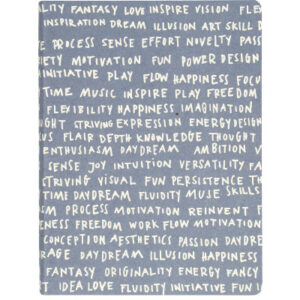 VITALITY FANTASY LOVE INSPIRE VISION FL
INSPIRATION DREAM ILLUSION ART SKILL D
E PROCESS SENSE EFFORT NOVELTY PASS
IETY MOTIVATION FUN POWER DESIGN
INITIATIVE PLAY FLOW HAPPINESS FOCUS
TIME MUSIC INSPIRE PLAY FREEDOM
FLEXIBILITY HAPPINESS IMAGINATION
UGHT STRIVING EXPRESSION ENERGY DESIGN
US FLAIR DEPTH KNOWLEDGE THOUGHT
ENTHUSIASM DAYDREAM AMBITION V
SENSE JOY INTUITION VERSATILITY FA
STRIVING VISUAL FUN PERSISTENCE TH
TIME DAYDREAM FLUIDITY MUSE SKILLS
SM PROCESS MOTIVATION REINVENT F
ENESS FREEDOM WORK FLOW MOTIVATION
CONCEPTION AESTHETICS PASSION DAYDRE
RAGE DAYDREAM ILLUSION HAPPINESS
FANTASY ORIGINALITY ENERGY FANCY
T IDEA LOVE FLUIDITY INITIATIVE FUN